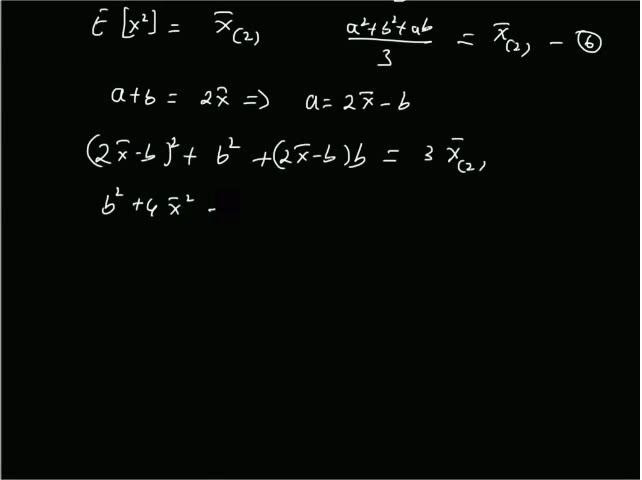 E [x²] = x̄₍₂₎   (a²+b²+ab)/3 = x̄₍₂₎ - ⑥
a+b = 2x̄ => a = 2x̄ - b
(2x̄-b)² + b² + (2x̄-b)b = 3 x̄₍₂₎
b² + 4 x̄² -